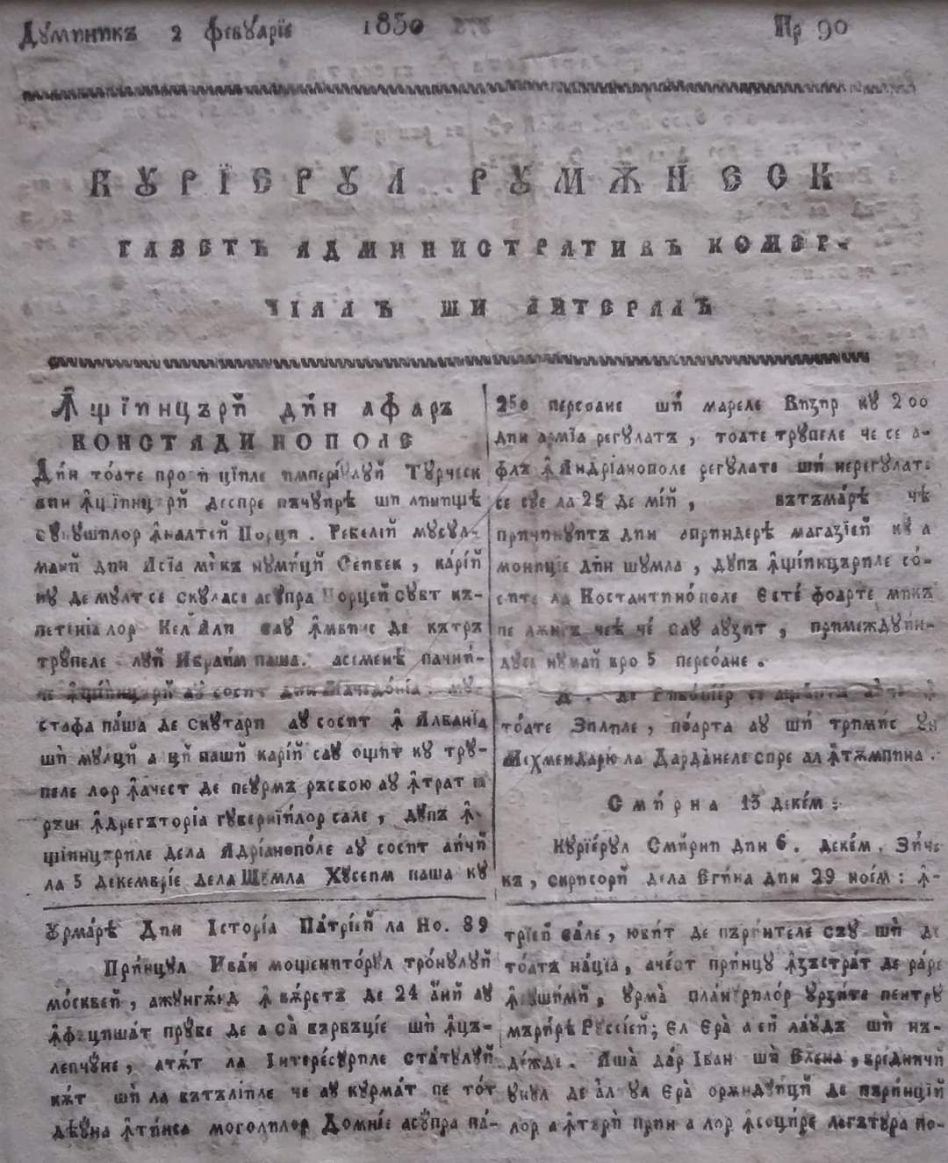 Дꙋминикъ 2 февꙋарїе 1830 Нр 90
КꙋРЇЕРꙋЛ РꙋМѪНЕСК
ГАЗЕТЪ АДМИНИСТРАТИВЪ КОМЕР-
ЧІАЛЪ ШИ ЛИТЕРАЛЪ
Ꙟщїинцърй дин афаръ
КОНСТАДИНОПОЛЕ
Дин тоате империꙋлꙋй Тꙋрческ
вин деспре ши линище
сꙋпꙋшилор ꙟналтей Порци. Ребелїй мꙋсꙋл-
маній дин Асїа микъ нꙋмиций Сейбек, карїй
нꙋ де мꙋлт се скꙋласе асꙋпра Порцей сꙋвт къ-
петеніа лор Кел Али саꙋ ꙟвинс де кътръ
трꙋпеле лꙋй Ибраим паша. асеменѣ пачни-
че ꙟщїинцърй аꙋ сосит дин Мачедонїа. Мꙋ-
стафа паша де Скꙋтари аꙋ сосит ꙟ Албанїа
ши мꙋлцй а цй пашй карїй саꙋ ощит кꙋ трꙋ-
пеле лор ꙟачест де пеꙋрмъ ръсбою аꙋ ꙟтрат
ръши ꙟдрегъторїа гꙋбернїилор сале, дꙋпъ ꙟ-
щїинцъриле дела Адріанополе аꙋ сосит аичй
ла 5 Декембріе дела Шꙋмла Хꙋсеим паша кꙋ
250 персоане ши мареле Визир кꙋ 200
дин армїа регꙋлатъ, тоате трꙋпеле че се а-
флъ ꙟ Андріанополе регꙋлате ши нерегꙋлате
се сꙋе ла 25 де мїй, вътъмарѣ че
причинꙋит дин априндерѣ магазїей кꙋ а-
мониціе дин Шꙋмла, дꙋпъ ꙟщїинцъриле со-
сите ла Костантинополе есте фоарте микъ
пе лѫнгъ чеѣ че саꙋ аꙋзит, примеждꙋин-
дꙋсе нꙋмай вро 5 персоане.
Д. де Рибопіер се ащеаптъ аичй ꙟ
тоате зилиле, поарта аꙋ ши тримис ꙋн
Мехмендарю ла Дарданеле спре ал ꙟтѫмпина.
Смирна 13 декем:
Кꙋріерꙋл Смирнй дин 6. декем. зиче
къ, скрисорй дела Егина дин 29 ноем: ꙟ-
ꙋрмарѣ Дин Історїа Патріей ла Но. 89
Принцꙋл Иван мощениторꙋл тронꙋлꙋй
москвей, ажꙋнгѫнд ꙟ вѫрстъ де 24 аний аꙋ
ꙟфъцишат прꙋбе де а са бърбъціе ши ꙟцъ-
лепчꙋне, атѫт ла Інтересꙋриле статꙋлꙋй
кѫт ши ла бътъліиле че аꙋ кꙋрмат пе тот
дѣꙋна ꙟтинса моголилор Домніе асꙋпра па-
трїей сале, юбит де пъринтеле съꙋ ши де
тоатъ нація, ачест принцꙋ ꙟзъстрат де раре
ꙟсꙋшимй, ꙋрма планꙋрилор ꙋрзите пентрꙋ
мърирѣ Рꙋссіей; ел ера а ей лаꙋдъ ши нъ-
дежде. Аша дар Іван ши Елена, вредничй
ꙋнꙋл де ал ꙋл ера орѫндꙋицй де пъринцій
лор а ꙟтърй прин а лор ꙟсоцире легътꙋра по-